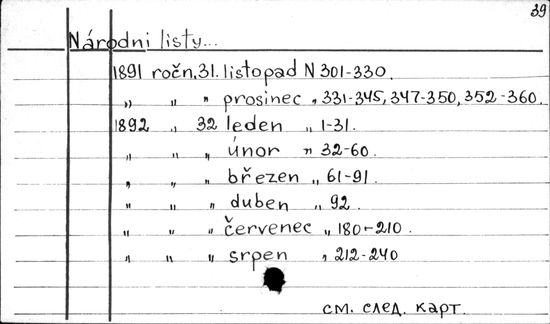 39
Národni listy...
1891 ročn. 31. listopad N 301-330.
„ „ „ prosinec „ 331-345, 347-350, 352-360.
1892 „ 32 leden „ 1-31.
„ „ „ únor „ 32-60.
„ „ „ březen „ 61-91.
„ „ „ duben „ 92.
„ „ „ červenec „ 180-210.
„ „ „ srpen „ 212-240
см. след. карт.